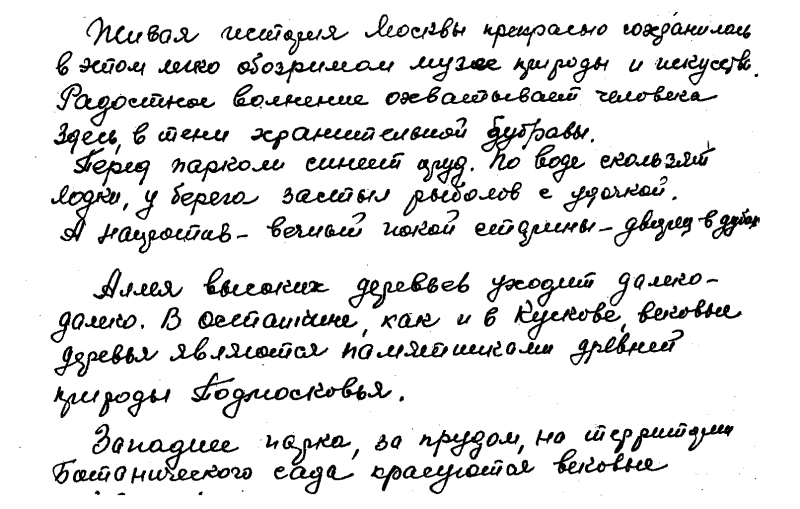 Живая история Москвы прекрасно сохранилась
в этом легко обозримом музее природы и искусств.
Радостное волнение охватывает человека
здесь, в тени хранительной дубравы.
Перед парком синеет пруд. По воде скользят
лодки, у берега застыл рыболов с удочкой.
А напротив - вечный покой старины - дворец в дубах
Аллея высоких деревьев уходит далеко-
далеко. В Останкине, как и в Кускове, вековые
деревья являются памятниками древней
природы Подмосковья.
Западнее парка, за прудом, на территории
Ботанического сада красуются вековые